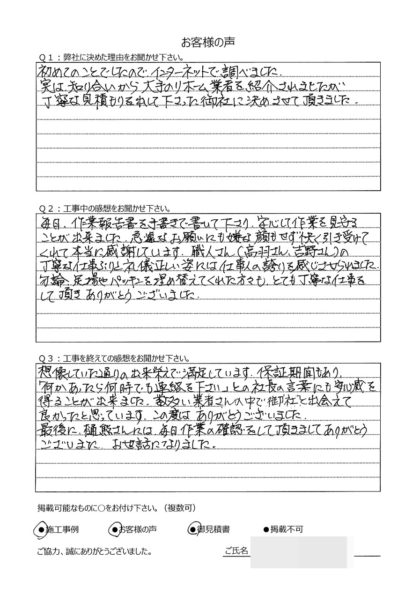 お客様の声
Q1：弊社に決めた理由をお聞かせ下さい。
初めてのことでしたので、インターネットで調べました。
実は知り合いから大手のリホーム業者を紹介されましたが
丁寧な見積もりをして下さった御社に決めさせて頂きました。
Q2：工事中の感想をお聞かせ下さい。
毎日、作業報告書を手書きで書いて下さり、安心して作業を見守る
ことが出来ました。急遽なお願いにも嫌な顔もせず快く引き受けて
くれて本当に感謝しています。職人さん（高羽さん、吉野さん）の
丁寧な仕事ぶりと礼儀正しい姿には仕事人の誇りを感じさせられました。
勿論、足場やパッキンを埋め替えてくれた方々も、とても丁寧な仕事を
して頂きありがとうございました。
Q3：工事を終えての感想をお聞かせ下さい。
想像していた通りの出来栄で満足しています。保証期間もあり、
「何かあったら何時でも連絡を下さい」との社長の言葉にも安心感を
得ることが出来ました。数多い業者さんの中で御社と出会えて
良かったと思っています。この度は ありがとうございました。
最後に、樋熊さんには、毎日作業の確認をして頂きましてありがとう
ございました。お世話になりました。
掲載可能なものに○をお付け下さい。（複数可）
●施工事例 ●お客様の声 ●御見積書 ●掲載不可
ご協力、誠にありがとうございました。 ご氏名